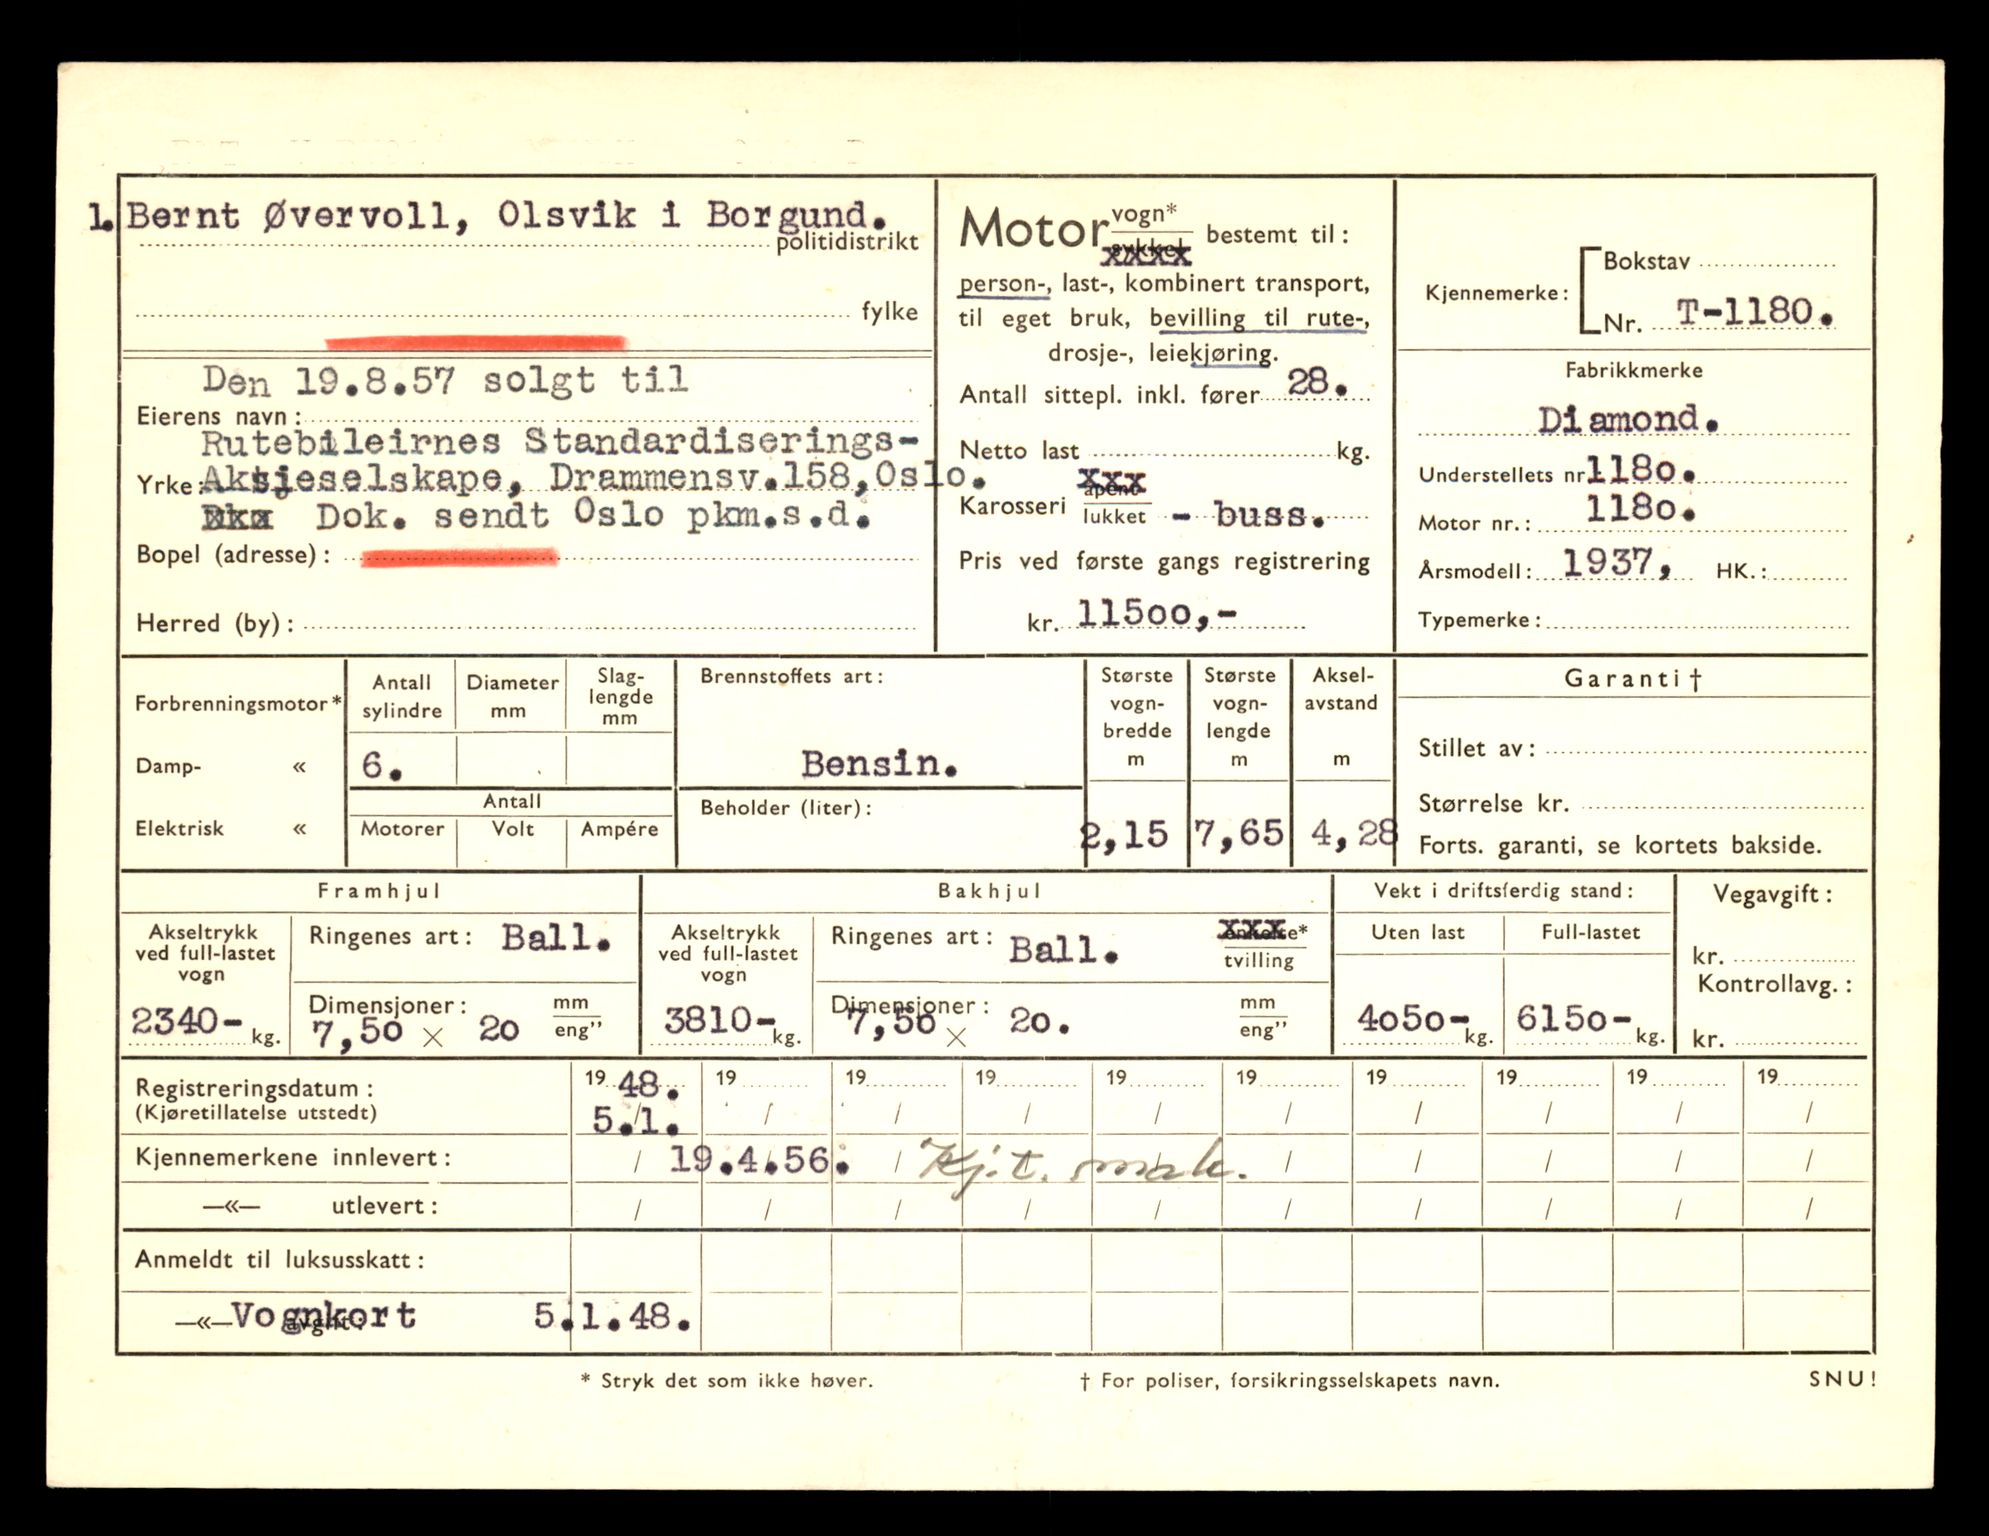 1. Bernt Øvervoll, Olsvik i Borgund.
politidistrikt
fylke
Den 19.8.57 solgt til
Eierens navn:
Rutebileirnes Standardiserings-
Yrke: Aktsjeselskape, Drammensv.158,Oslo.
Dok. sendt Oslo pkm.s.d.
Bopel (adresse):
Herred (by):
Motor vogn* bestemt til:
sykkel
xxxx
person-, last-, kombinert transport,
til eget bruk, bevilling til rute-,
drosje-, leiekjøring.
Antall sittepl. inkl. fører 28.
Netto last kg.
xxx
Karosseri åpent
lukket - buss.
Pris ved første gangs registrering
kr. 11500,-
Kjennemerke: Bokstav
Nr. T-1180.
Fabrikkmerke
Diamond.
Understellets nr 1180.
Motor nr.: 1180.
Årsmodell: 1937, HK.:
Typemerke:
Forbrenningsmotor*
Damp- «
Elektrisk «
Antall sylindre
Diameter mm
Slag-
lengde
mm
6.
Antall
Motorer Volt Ampére
Brennstoffets art:
Bensin.
Beholder (liter):
Største
vogn-
bredde
m
2,15
Største
vogn-
lengde
m
7,65
Aksel-
avstand
m
4,28
Garanti †
Stillet av:
Størrelse kr.
Forts. garanti, se kortets bakside.
Framhjul
Akseltrykk
ved full-lastet
vogn
2340- kg.
Ringenes art: Ball.
Dimensjoner: mm
7,50 × 20 eng”
Bakhjul
Akseltrykk
ved full-lastet
vogn
3810- kg.
Ringenes art: Ball.
xxx
enkelse*
tvilling
Dimensjoner: mm
7,50 × 20. eng”
Vekt i driftsferdig stand:
Uten last Full-lastet
4050- kg. 6150- kg.
Vegavgift:
kr.
Kontrollavg.:
kr.
Registreringsdatum: 19 48. 19 19 19 19 19 19 19 19 19
(Kjøretillatelse utstedt) 5./1. / / / / / / / / /
Kjennemerkene innlevert: / 19.4.56. / Kj.t. mak. / / / / /
—«— utlevert: / / / / / / / / / /
Anmeldt til luksusskatt:
—«— Vognkort avgitt: 5.1.48.
* Stryk det som ikke høver.
† For poliser, forsikringsselskapets navn.
SNU!